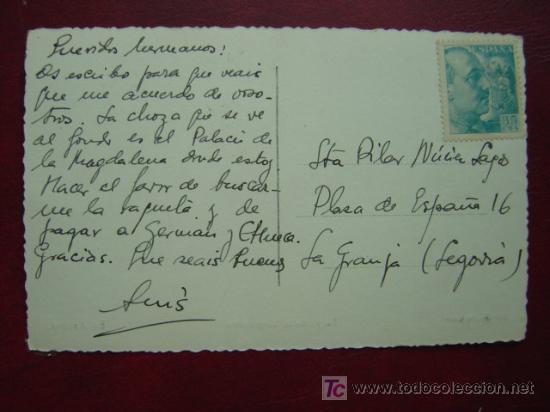 Queridos hermanos!
Os escribo para que veais
que me acuerdo de voso-
tros. La choza que se ve
al fondo es el Palacio de
la Magdalena donde estoy
Hacer el favor de buscar-
me la raqueta y de
pagar a Germán y
Gracias. Que seais buenos
Luis
ESPAÑA
35
CTS
Sta Pilar Lago
Plaza de España 16
La Granja (Segovia)
TC
todocoleccion.net